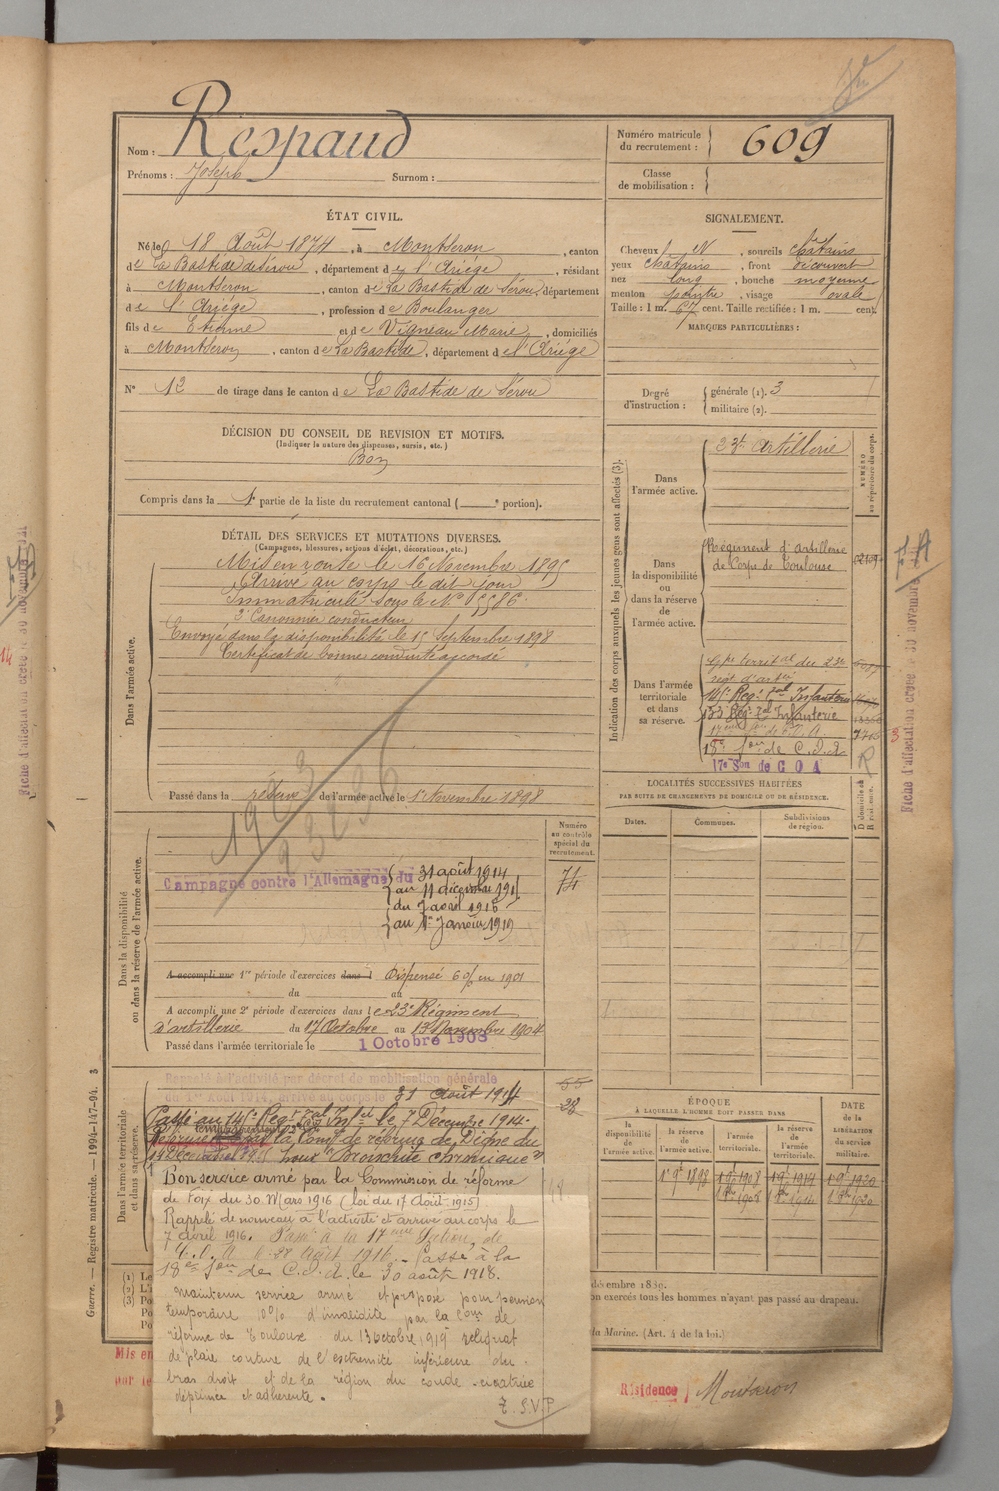 Nom : Respaud
Prénoms : Joseph Surnom :
Numéro matricule du recrutement : 609
Classe de mobilisation :
ÉTAT CIVIL.
Né le 18 Août 1874, à Montseron, canton
de La Bastide de Sérou, département de l'Ariége, résidant
à Montseron, canton de La Bastide de Sérou, département
de l'Ariége, profession de Boulanger
fils de Etienne et de Vigneau Marie, domiciliés
à Montseron, canton de La Bastide, département de l'Ariége
N° 12 de tirage dans le canton de La Bastide de Sérou
DÉCISION DU CONSEIL DE REVISION ET MOTIFS.
(Indiquer la nature des dispenses, sursis, etc.)
Bon
Compris dans la 1e partie de la liste du recrutement cantonal ( e portion).
DÉTAIL DES SERVICES ET MUTATIONS DIVERSES.
(Campagnes, blessures, actions d'éclat, décorations, etc.)
Dans l'armée active.
Mis en route le 16 Novembre 1895
Arrivé au corps le dit jour
Immatriculé sous le N° 5586
2e Canonnier conducteur
Envoyé dans la disponibilité le 15 Septembre 1898
Certificat de bonne conduite accordé
Passé dans la réserve de l'armée active le 1er Novembre 1898
Dans la disponibilité ou dans la réserve de l'armée active.
Numéro au contrôle spécial du recrutement.
74
Campagne contre l'Allemagne du 31 août 1914
au 11 décembre 1915
du 7 avril 1916
au 1er Janvier 1919
A accompli une 1re période d'exercices dans l Dispensé 6% en 1901
du au
A accompli une 2e période d'exercices dans le 23e Régiment
d'artillerie du 17 Octobre au 13 Novembre 1904
Passé dans l'armée territoriale le 1 Octobre 1908
Dans l'armée territoriale et dans sa réserve.
Rappelé à l'activité par décret de mobilisation générale
du 1er Août 1914, arrivé au corps le 31 août 1914
Passé au 14e Regt Inf le 7 Décembre 1914.
Réformé temporairement par la Comm de réforme de Digne du
pour "Bronchite chronique"
55
28
Bon service armé par la Commission de réforme
de Foix du 30 Mars 1916 (loi du 17 Août 1915)
Rappelé de nouveau à l'activité et arrivé au corps le
7 avril 1916. Passé à la 17ème Section de
C.O.A. le 28 Août 1916. - Passé à la
18e Son de C.O.A. le 30 août 1918.
Maintenu service armé et proposé pour pension
temporaire 10% d'invalidité par la Con de
réforme de Toulouse du 13 octobre 1919 reliquat
de plaie couture de l'extrémité inférieure du
bras droit et de la région du coude - cicatrice
déprimée et adhérente.
T.S.V.P
SIGNALEMENT.
Cheveux N, sourcils châtains
yeux châtains, front découvert
nez long, bouche moyenne
menton pointu, visage ovale
Taille : 1 m. 67 cent. Taille rectifiée : 1 m. cent.
MARQUES PARTICULIÈRES :
Degré d'instruction : générale (1). 3
militaire (2).
Indication des corps auxquels les jeunes gens sont affectés (3).
NUMÉRO au répertoire du corps.
Dans l'armée active.
23e Artillerie
Dans la disponibilité ou dans la réserve de l'armée active.
Régiment d'artillerie
de Corps de Toulouse
Dans l'armée territoriale et dans sa réserve.
Gpe territal du 23e
régt d'arté
133e Regt tal Infanterie
18e Son de C.O.A.
17e Son de COA
R
LOCALITÉS SUCCESSIVES HABITÉES
PAR SUITE DE CHANGEMENTS DE DOMICILE OU DE RÉSIDENCE.
Dates. Communes. Subdivisions de région. D domicile ou R résidence.
ÉPOQUE
À LAQUELLE L'HOMME DOIT PASSER DANS
DATE de la LIBÉRATION du service militaire.
la disponibilité de l'armée active. la réserve de l'armée active. l'armée territoriale. la réserve de l'armée territoriale.
1 9bre 1898 1 9bre 1908 1 9bre 1914 1 9bre 1920
1 8bre 1908 1 8bre 1914 1 8bre 1920
Guerre. — Registre matricule. — 1994-147-94. 3
(1) Le
(2) L'i
(3) Po
Po
Po
décembre 1889.
on exercés tous les hommes n'ayant pas passé au drapeau.
la Marine. (Art. 4 de la loi.)
Mis en
par le
Résidence Montseron
Fiche d'affectation créée le 30 novembre
F. A
1923